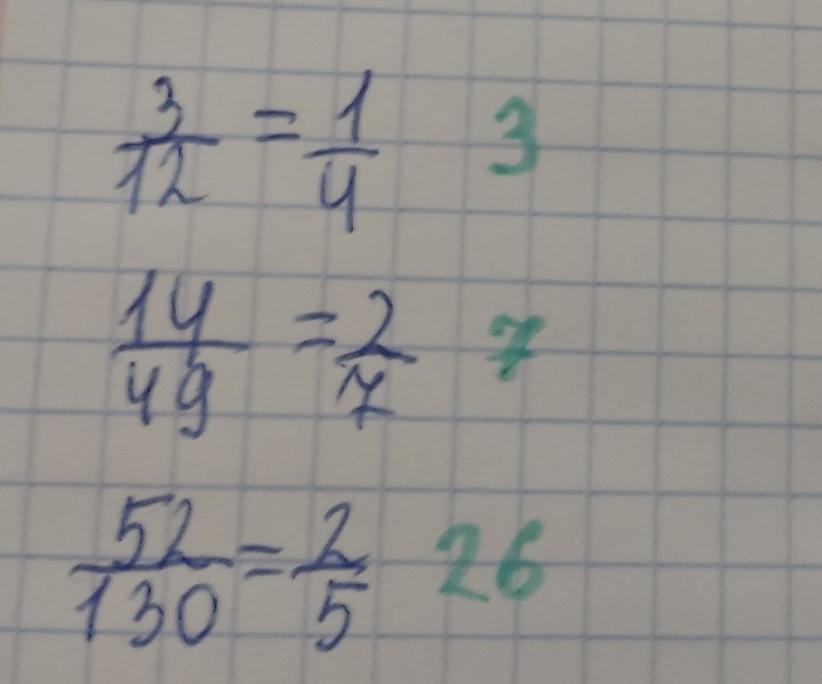 3/12 = 1/4 3
14/49 = 2/7 7
52/130 = 2/5 26